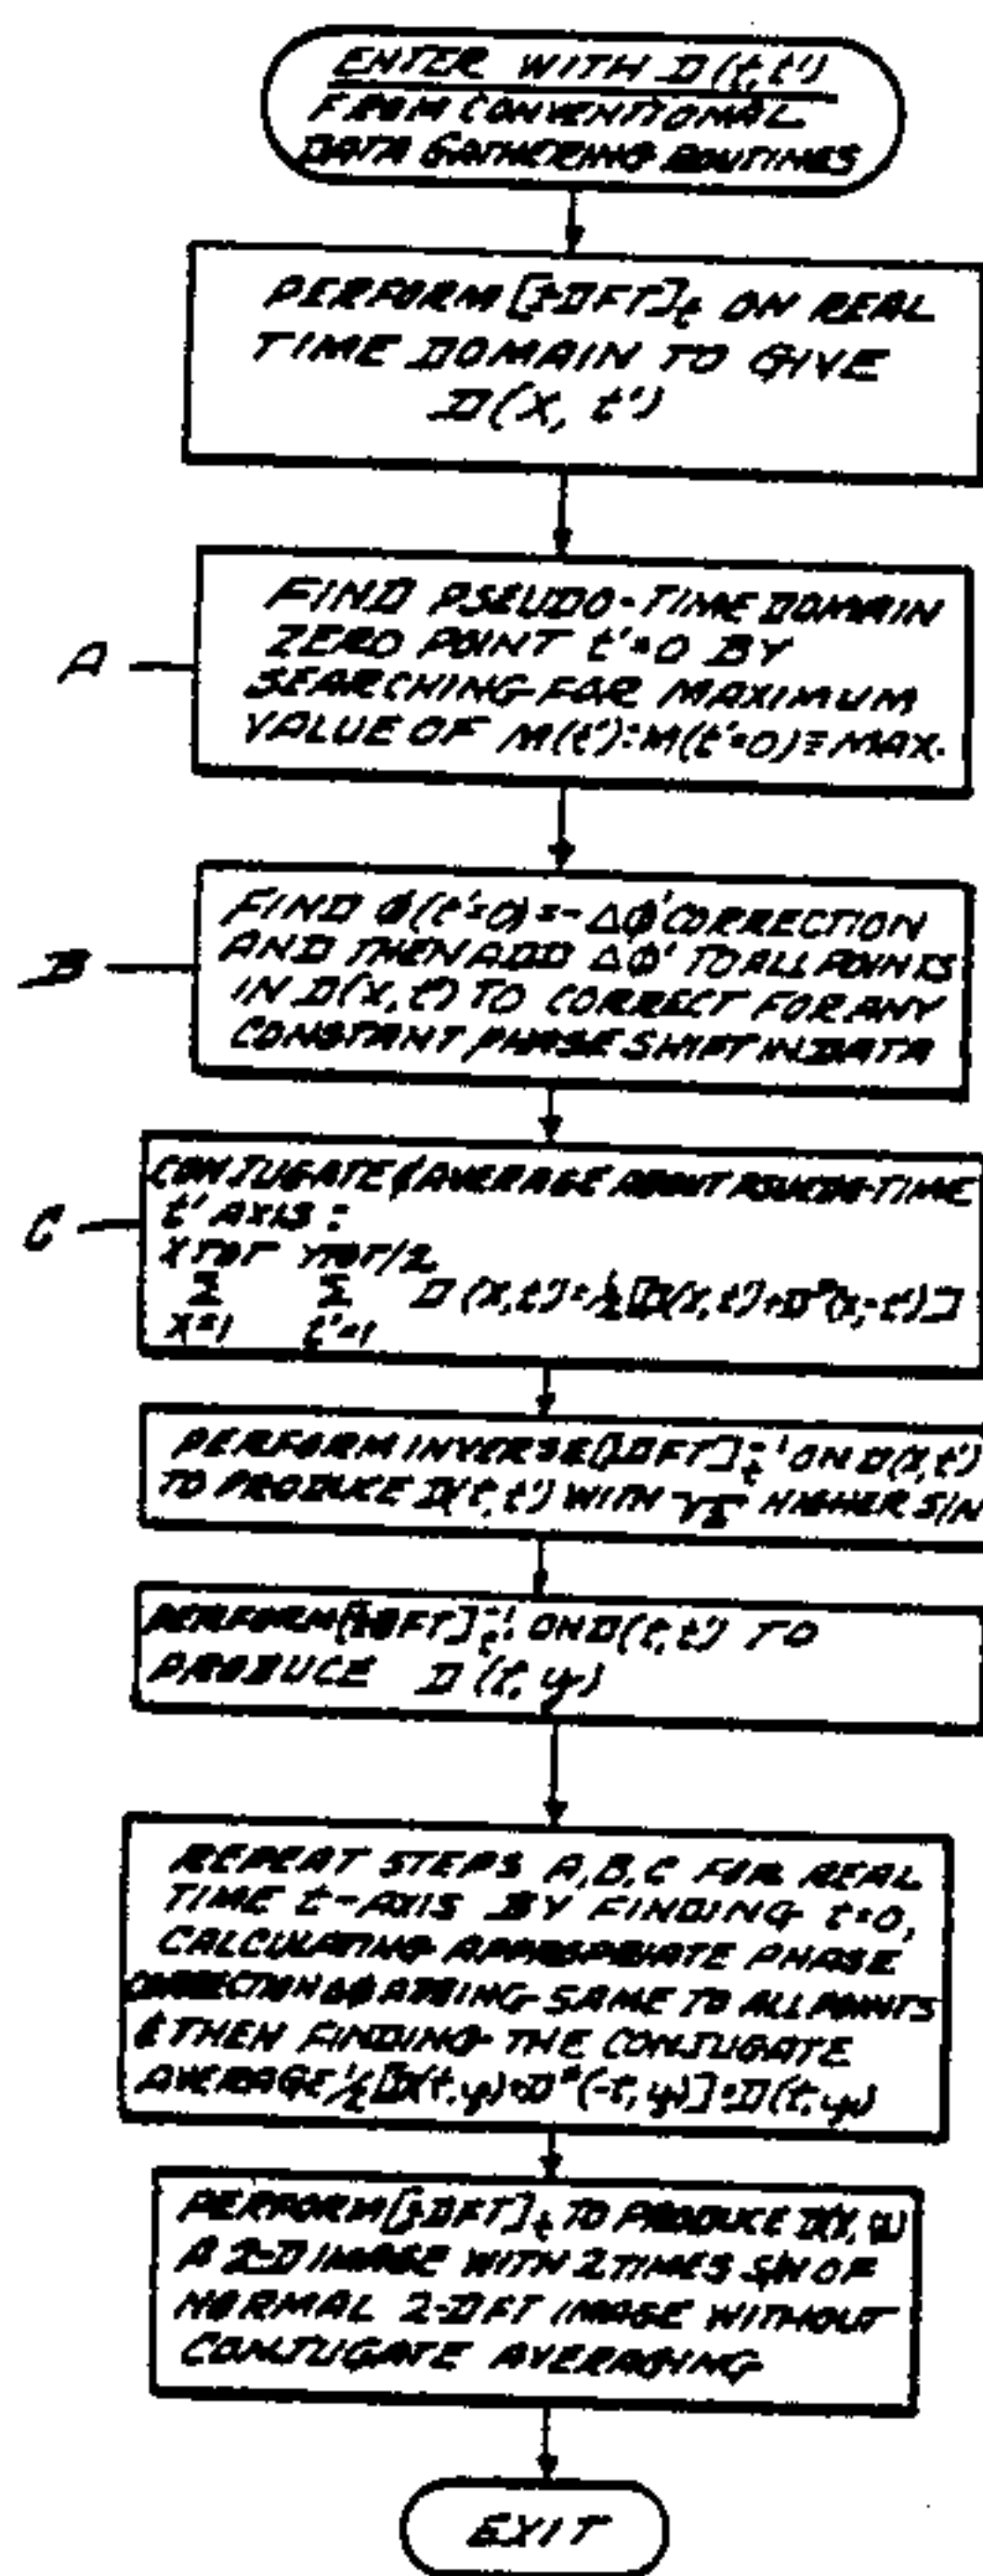 ENTER WITH D(t,t')
FROM CONVENTIONAL
DATA GATHERING ROUTINES
PERFORM [1DFT]t ON REAL
TIME DOMAIN TO GIVE
D(X, t')
A
FIND PSEUDO-TIME DOMAIN
ZERO POINT t'=0 BY
SEARCHING FOR MAXIMUM
VALUE OF M(t'):M(t'=0)≡MAX.
B
FIND ϕ(t'=0)=-Δϕ' CORRECTION
AND THEN ADD Δϕ' TO ALL POINTS
IN D(X,t') TO CORRECT FOR ANY
CONSTANT PHASE SHIFT IN DATA
C
CONJUGATE & AVERAGE ABOUT PSUEDO-TIME
t' AXIS:
XTOT YTOT/2
Σ Σ D(X,t')=½[D(X,t')+D*(X,-t')]
X=1 t'=1
PERFORM INVERSE [1DFT]t⁻¹ ON D(X,t')
TO PRODUCE D(t,t') WITH √2 HIGHER S/N
PERFORM [1DFT]t'⁻¹ ON D(t,t') TO
PRODUCE D(t,y)
REPEAT STEPS A,B,C FOR REAL
TIME t-AXIS BY FINDING t=0,
CALCULATING APPROPRIATE PHASE
CORRECTION Δϕ ADDING SAME TO ALL POINTS
& THEN FINDING THE CONJUGATE
AVERAGE ½[D(t,y)+D*(-t,y)]=D(t,y)
PERFORM [1DFT]t TO PRODUCE D(X,y)
A 2-D IMAGE WITH 2 TIMES S/N OF
NORMAL 2-DFT IMAGE WITHOUT
CONJUGATE AVERAGING
EXIT